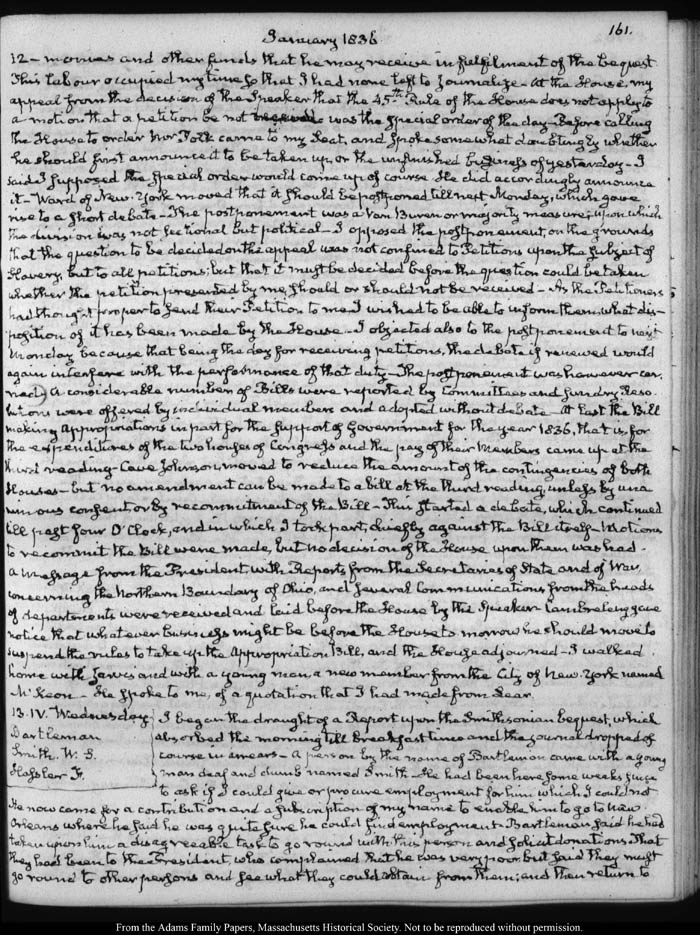 161.
January 1836
12 – monies and other funds that he may receive in fulfilment of the bequest
This labour occupied my time so that I had none left to Journalize – At the House, my
appeal from the decision of the Speaker that the 45th Rule of the House does not apply to
a motion that a petition be not received was the special order of the day – Before calling
the House to order Mr Polk came to my Seat, and spoke somewhat doubtingly whether
he should first announce it to be taken up, or the unfinished business of yesterday – I
said I supposed the special order would come up of course. He did accordingly announce
it – Ward of New-York moved that it should be postponed till next Monday, which gave
rise to a short debate – The postponement was a Van Buren or majority measure; upon which
the division was not sectional but political – I opposed the postponement, on the grounds
that the question to be decided on the appeal was not confined to Petitions upon the subject of
Slavery, but to all petitions; but that it must be decided before the question could be taken
whether the petition presented by me, should or should not be received – As the Petitioners
had thought proper to send their Petition to me I wished to be able to inform them, what dis-
position of it has been made by the House – I objected also to the postponement to next
Monday because that being the day for receiving petitions, the debate if renewed would
again interfere with the performance of that duty – The postponement was however car-
ried. A considerable number of Bills were reported by Committees and sundry Reso-
lutions were offered by individual members and adopted without debate – At last the Bill
making Appropriations in part for the support of Government for the year 1836, that is, for
the expenditures of the two houses of Congress and the pay of their Members came up at the
third reading – Cave Johnson moved to reduce the amount of the contingencies of both
Houses – but no amendment can be made to a bill at the third reading, unless by una-
nimous consent or by recommitment of the Bill – This started a debate, which continued
till past four O'Clock, and in which I took part, chiefly against the Bill itself – Motions
to recommit the Bill were made, but no decision of the House upon them was had.
A Message from the President with Reports from the Secretaries of State and of War,
concerning the Northern Boundary of Ohio, and several Communications from the heads
of departments were received and laid before the House by the Speaker. Cambreleng gave
notice that whatever business might be before the House to morrow he should move to
suspend the rules to take up the Appropriation Bill, and the House adjourned – I walked
home with Jarvis and with a young man, a new member from the City of New-York named
McKeon – He spoke to me, of a quotation that I had made from Lear.
13. IV. Wednesday
Bartleman
Smith. W. B.
Hassler F.
I began the draught of a Report upon the Smithsonian bequest, which
absorbed the morning till breakfast time and the journal dropped of
course in arrears – A person by the name of Bartleman came with a young
man deaf and dumb named Smith – He had been here some weeks since
to ask if I could give or procure employment for him which I could not
He now came for a contribution and a subscription of my name to enable him to go to New
Orleans where he said he was quite sure he could find employment. Bartleman said he had
taken upon him a disagreeable task to go round with this person and solicit donations. That
they had been to the President, who complained that he was very poor but said they must
go round to other persons and see what they could obtain from them; and then return to
From the Adams Family Papers, Massachusetts Historical Society. Not to be reproduced without permission.